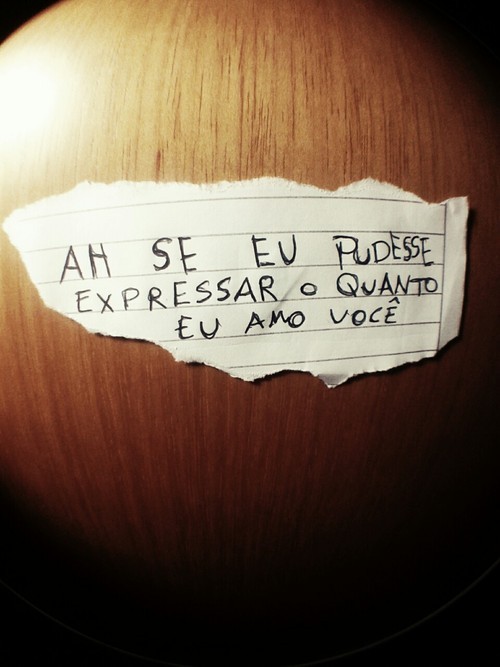 AH SE EU PUDESSE
EXPRESSAR O QUANTO
EU AMO VOCÊ